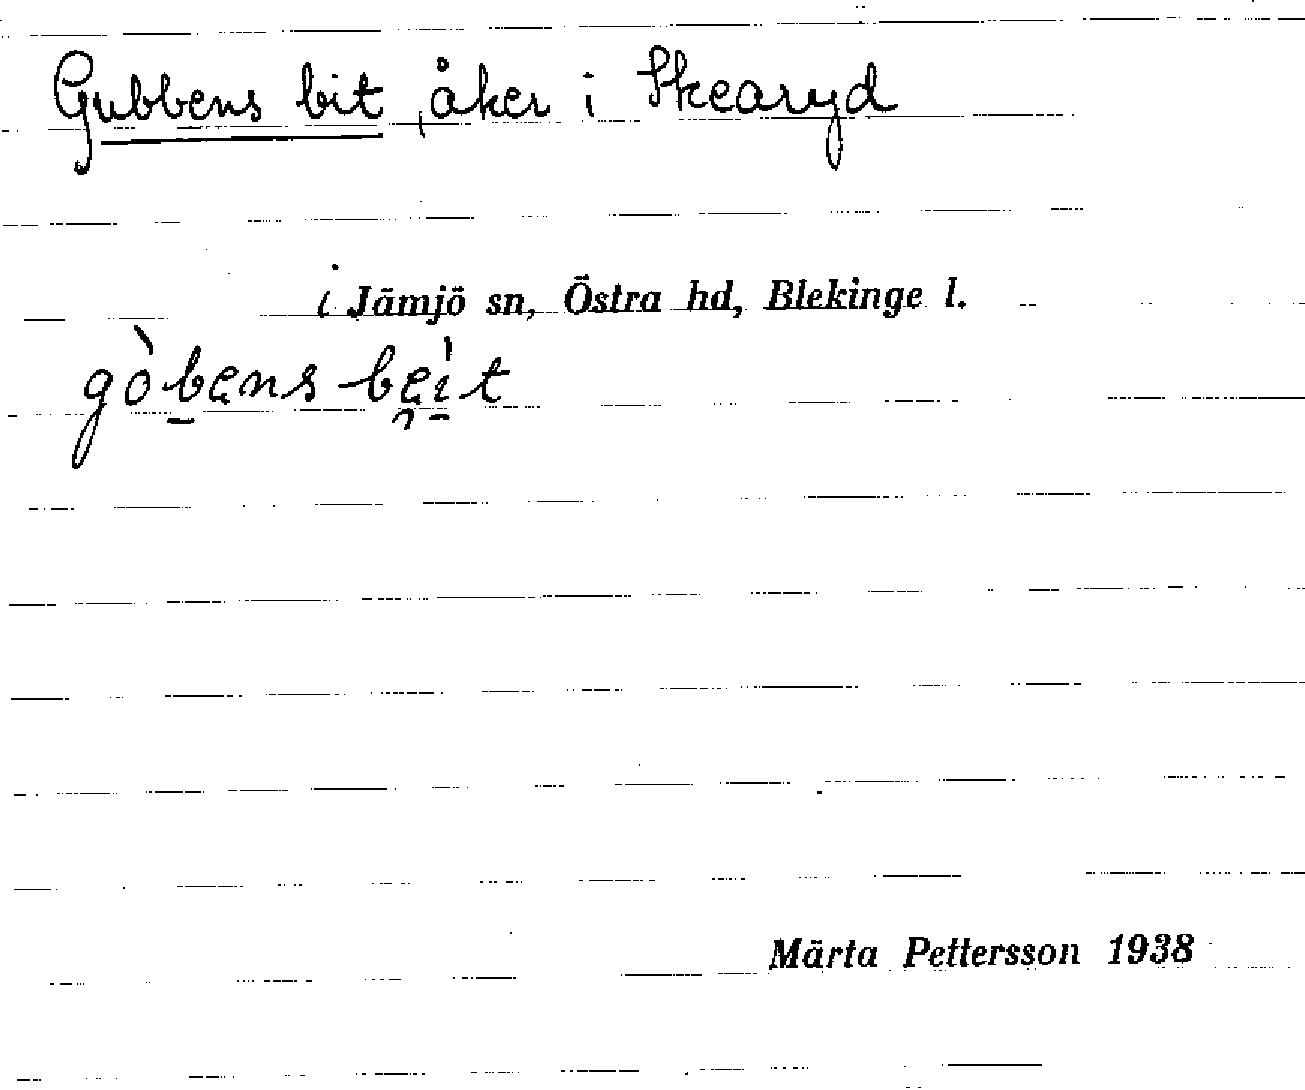 Gubbens bit, åker i Skearyd
i Jämjö sn, Östra hd, Blekinge l.
gòb̠ens bei̠̍t
Märta Pettersson 1938